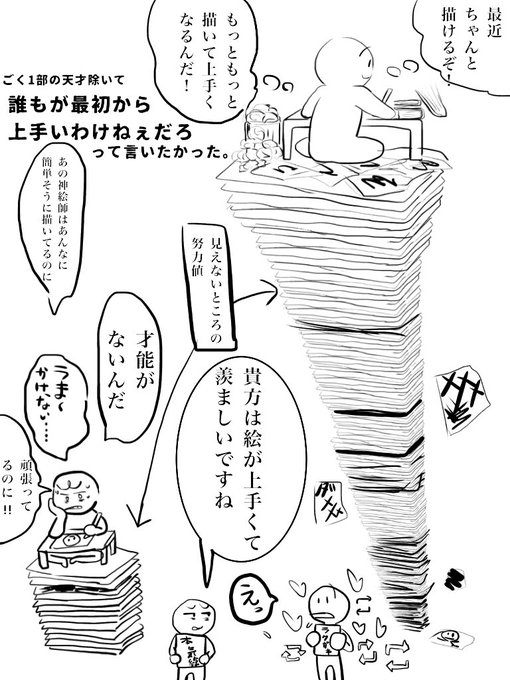 最近
ちゃんと
描けるぞ!
もっともっと
描いて上手く
なるんだ!
ごく1部の天才除いて
誰もが最初から
上手いわけねぇだろ
って言いたかった。
あの神絵師はあんなに
簡単そうに描いてるのに
見えないところの
努力値
才能が
ないんだ
うま〜
かけない……
頑張って
るのに!!
貴方は絵が上手くて
羨ましいですね
えっ
ラクガキ